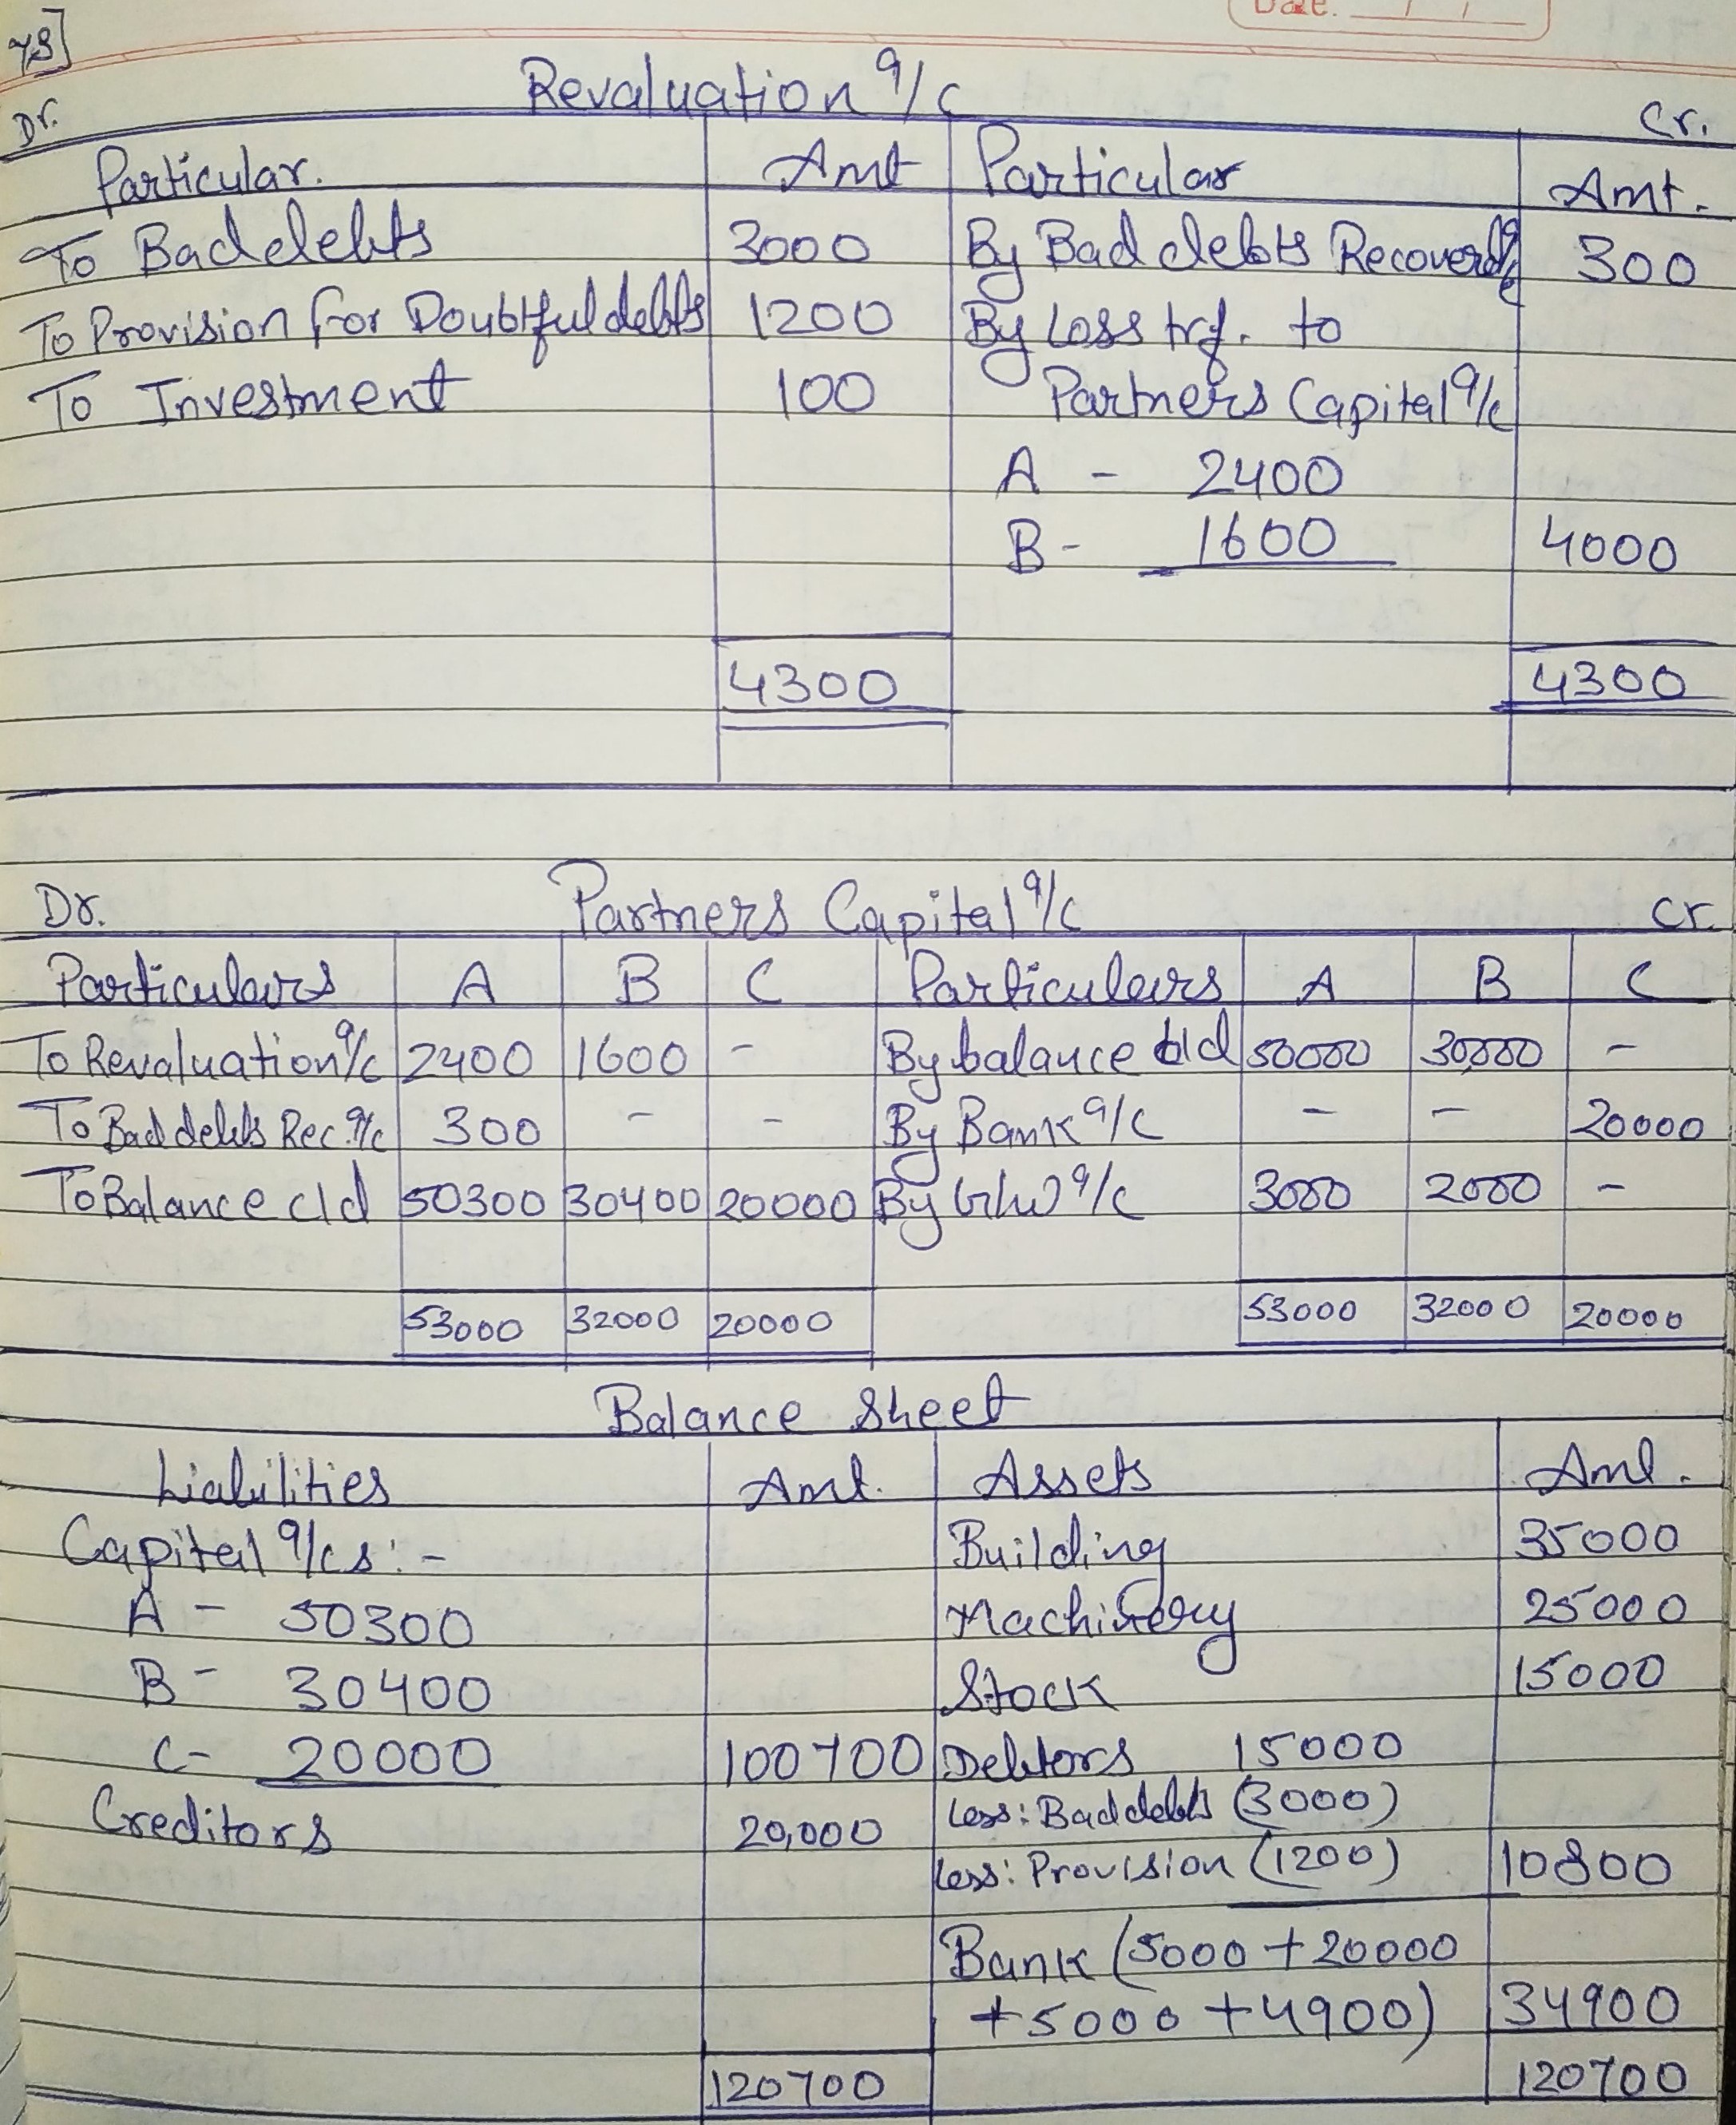 Date. / /
78]
Revaluation a/c
Dr. Cr.
Particular. Amt Particular Amt.
To Bad debts 3000 By Bad debts Recovered a/c 300
To Provision for Doubtful debts 1200 By Loss trf. to
To Investment 100 Partners Capital a/c
A - 2400
B - 1600 4000
4300 4300
Dr. Partners Capital a/c Cr.
Particulars A B C Particulars A B C
To Revaluation a/c 2400 1600 - By balance b/d 50000 30,000 -
To Bad debts Rec. a/c 300 - - By Bank a/c - - 20000
To Balance c/d 50300 30400 20000 By G/w a/c 3000 2000 -
53000 32000 20000 53000 32000 20000
Balance Sheet
Liabilities Amt. Assets Amt.
Capital a/cs :- Building 35000
A - 50300 Machinery 25000
B - 30400 Stock 15000
C - 20000 100700 Debtors 15000
Creditors 20,000 Less: Bad debts (3000)
Less: Provision (1200) 10800
Bank (5000 + 20000
+ 5000 + 4900) 34900
120700 120700